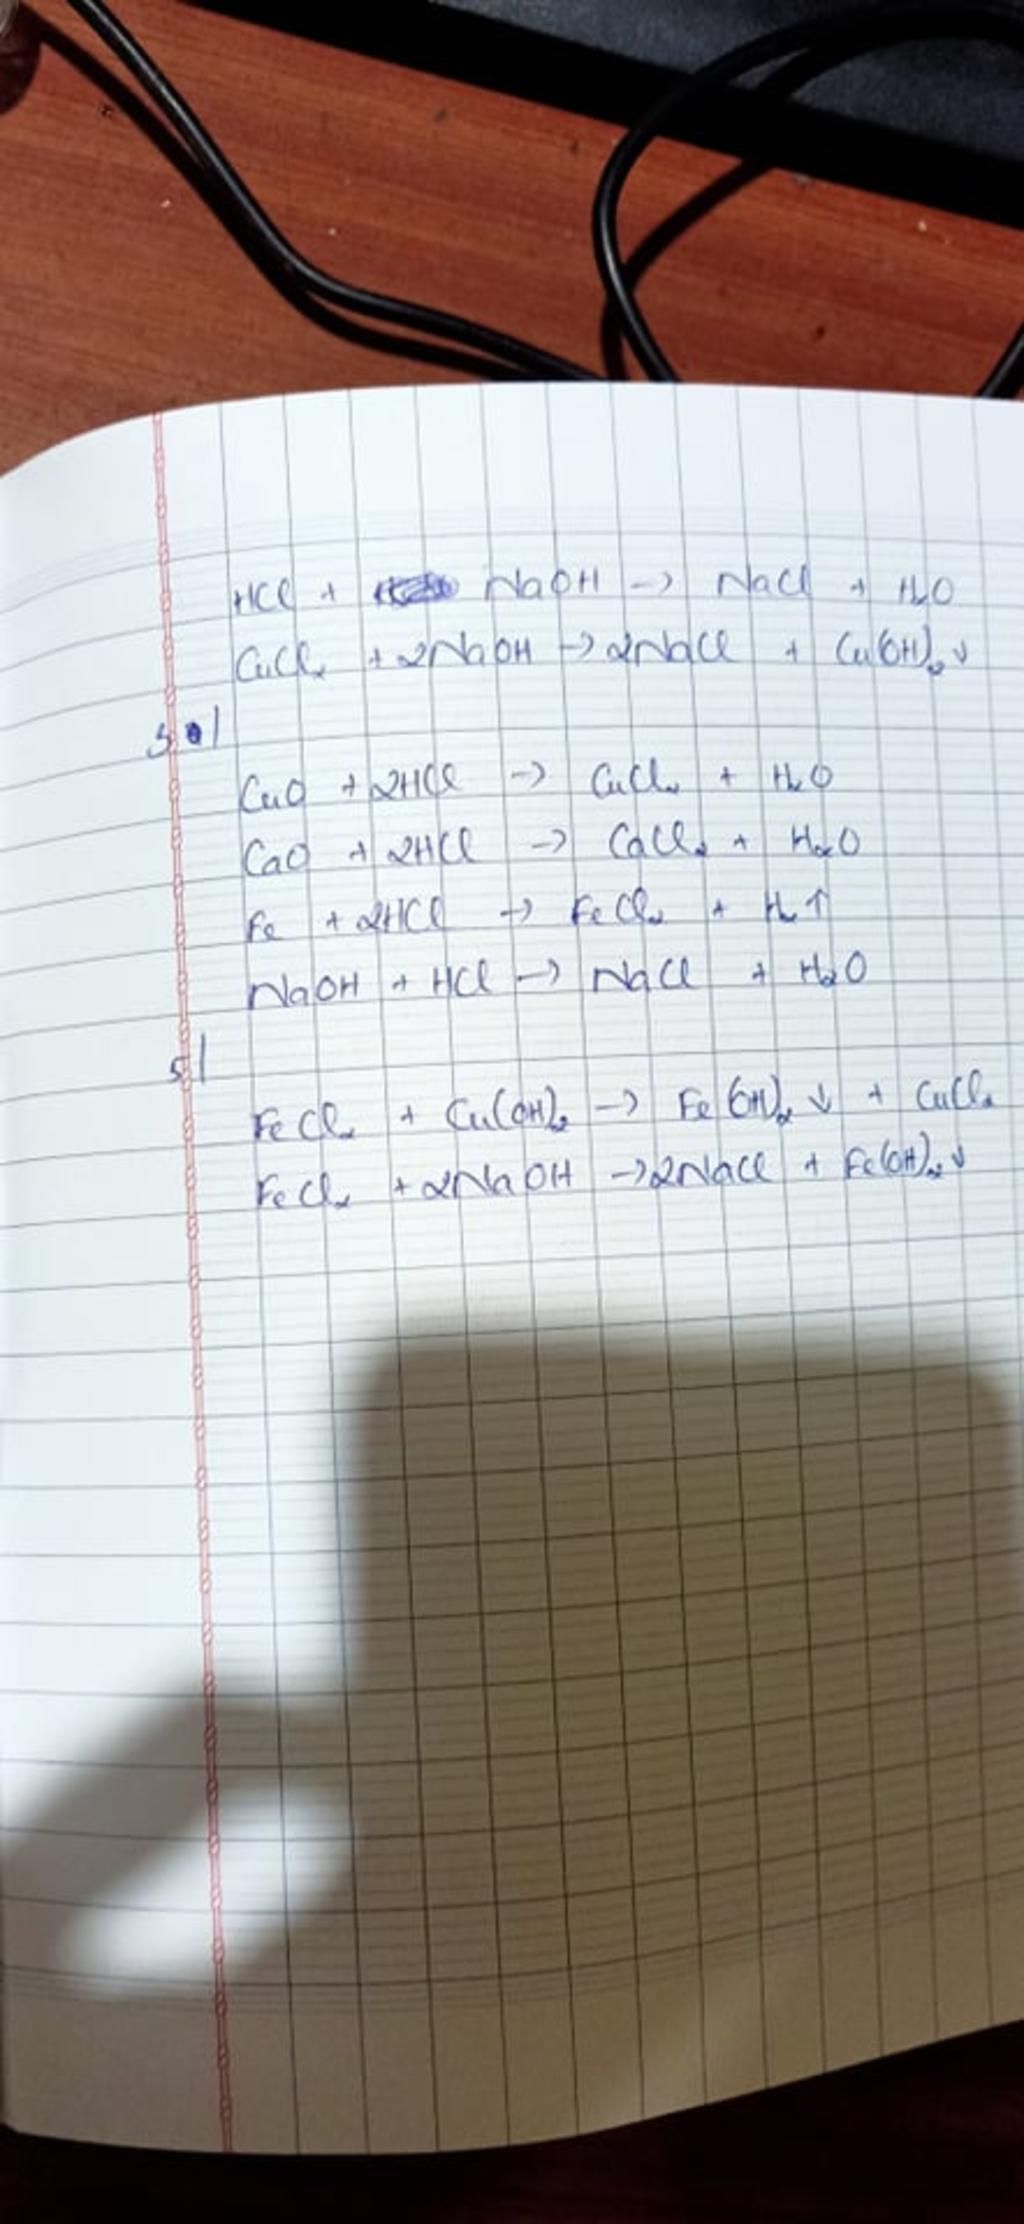 HCl + NaOH -> NaCl + H2O
CuCl2 + 2NaOH -> 2NaCl + Cu(OH)2 ↓
CuO + 2HCl -> CuCl2 + H2O
CaO + 2HCl -> CaCl2 + H2O
Fe + 2HCl -> FeCl2 + H2 ↑
NaOH + HCl -> NaCl + H2O
5/
FeCl2 + Cu(OH)2 -> Fe(OH)2 ↓ + CuCl2
FeCl2 + 2NaOH -> 2NaCl + Fe(OH)2 ↓